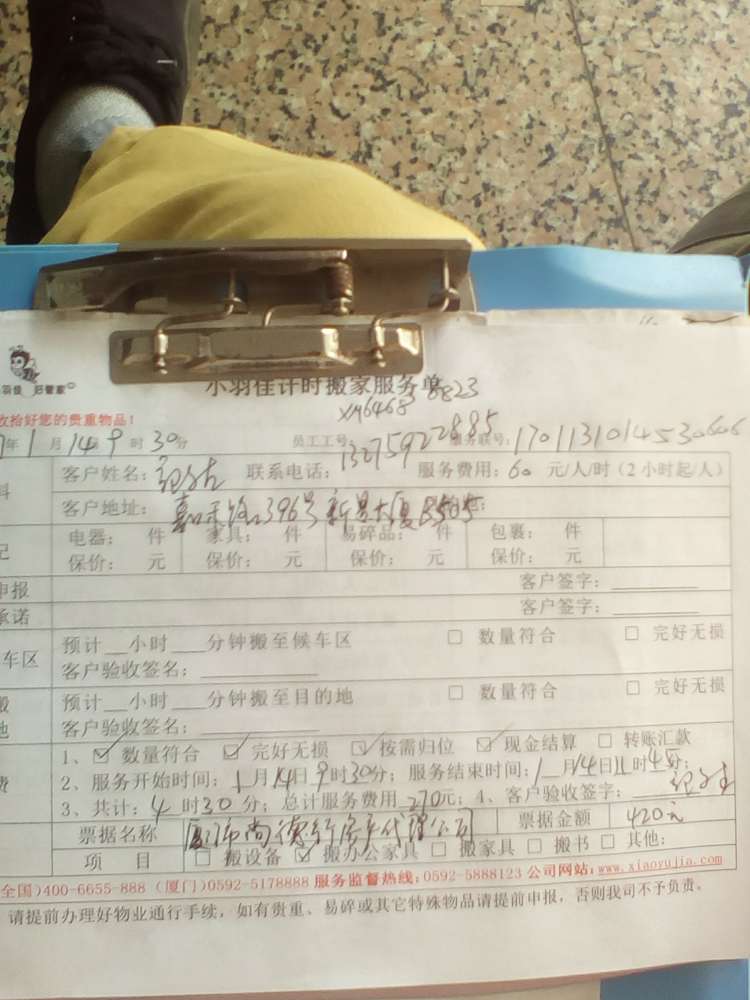 小羽佳计时搬家服务单
XM6468 8823
收拾好您的贵重物品!
年1月14日9时30分 员工工号: 服务联号:1701131014530606
13275922885
客户姓名: 联系电话: 服务费用:60元/人/时(2小时起/人)
客户地址:嘉禾路396号新景大厦B505
电器: 件 家具: 件 易碎品: 件 包裹: 件
保价: 元 保价: 元 保价: 元 保价: 元
申报 客户签字:
承诺 客户签字:
预计__小时___分钟搬至候车区 □ 数量符合 □ 完好无损
车区
客户验收签名:
预计__小时___分钟搬至目的地 □ 数量符合 □ 完好无损
客户验收签名:
1、☑ 数量符合 ☑ 完好无损 ☑ 按需归位 ☑ 现金结算 □ 转账汇款
2、服务开始时间:1月14日9时30分;服务结束时间:1月14日11时45分;
3、共计:4时30分;总计服务费用270元;4、客户验收签字:
票据名称 厦门市尚德行房产代理公司 票据金额 420元
项 目 □ 搬设备 ☑ 搬办公家具 □ 搬家具 □ 搬书 □ 其他:
全国)400-6655-888 (厦门)0592-5178888 服务监督热线:0592-5888123 公司网站:www.xiaoyujia.com
请提前办理好物业通行手续,如有贵重、易碎或其它特殊物品请提前申报,否则我司不予负责。